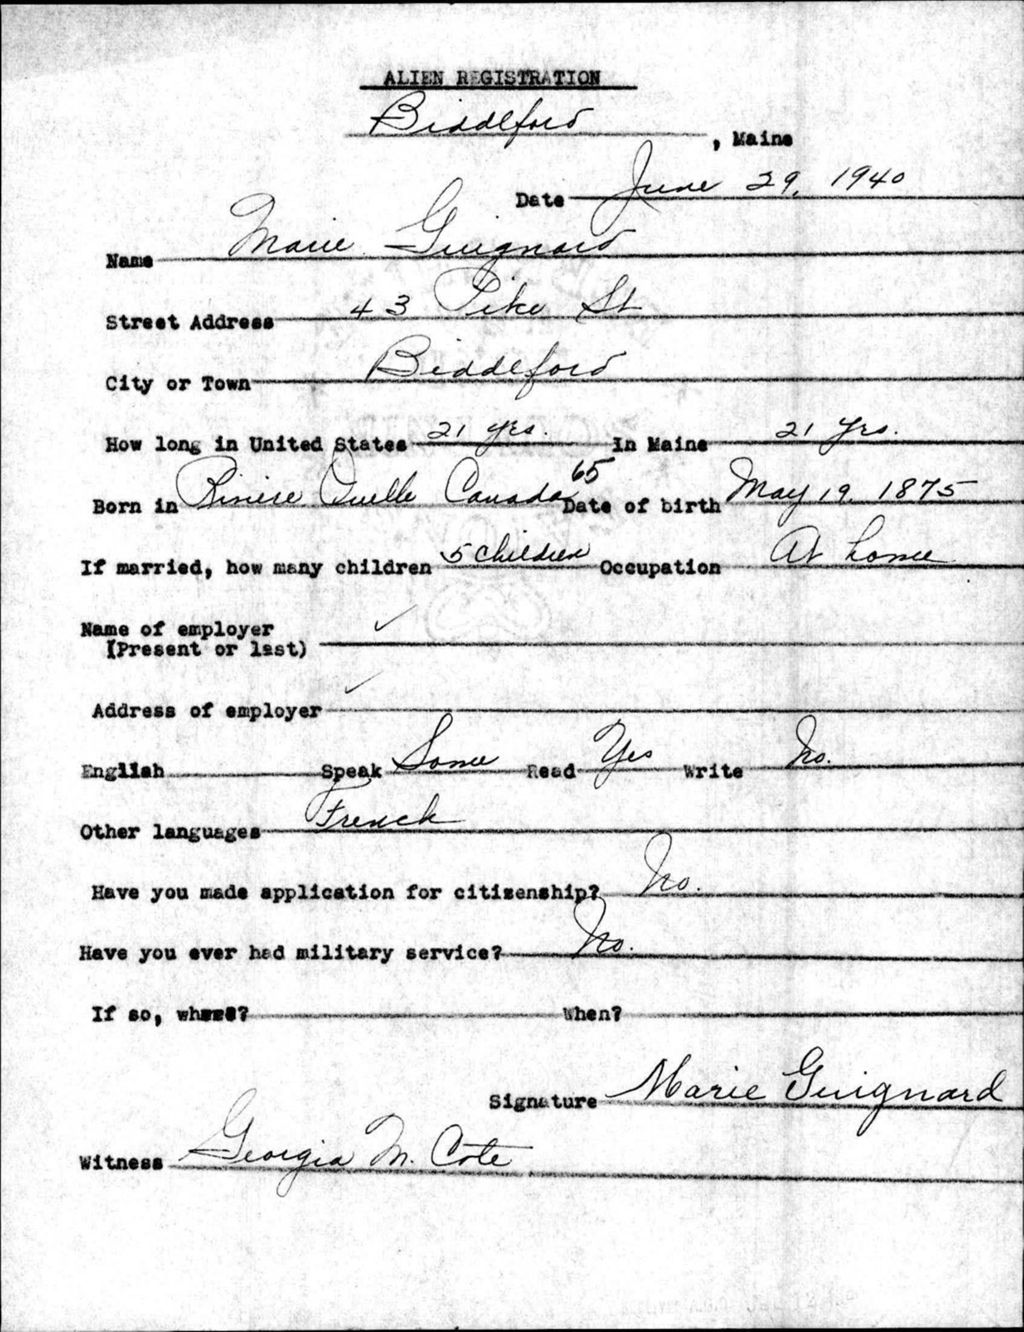 ALIEN REGISTRATION
Biddeford, Maine
Date June 29, 1940
Name Marie Guignard
Street Address 43 Pike St
City or Town Biddeford
How long in United States 21 yrs. In Maine 21 yrs.
Born in Riviere Ouelle Canada 65 Date of birth May 19 1875
If married, how many children 5 children Occupation At home
Name of employer ✓
(Present or last)
Address of employer ✓
English Speak Some Read Yes Write No.
Other languages French
Have you made application for citizenship? No.
Have you ever had military service? No.
If so, where? When?
Signature Marie Guignard
Witness Georgia M. Cote